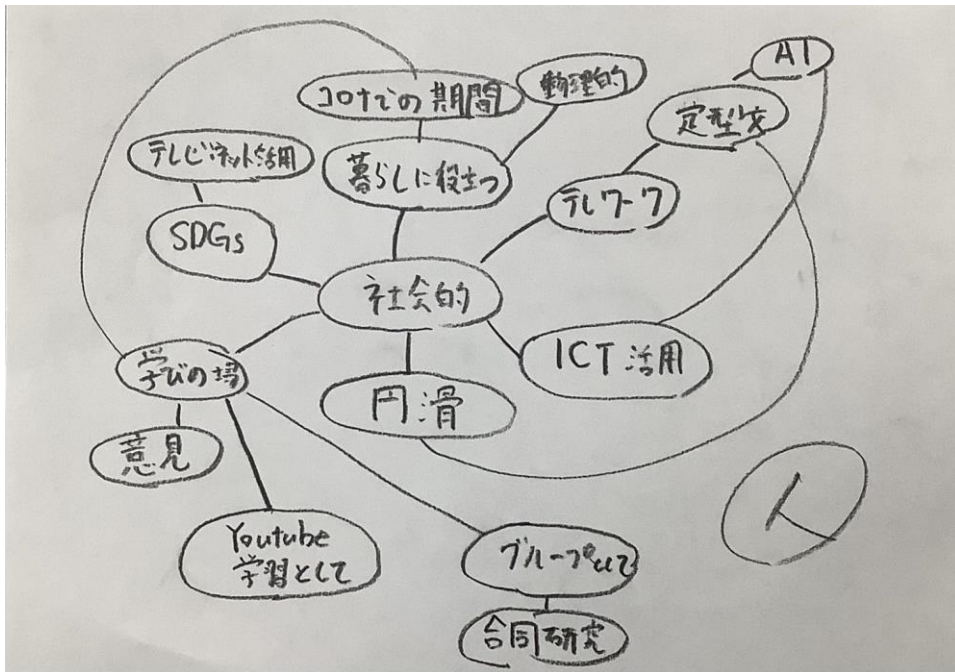 AI
コロナでの期間
物理的
定型文
テレビ・ネット活用
暮らしに役立つ
テレワーク
SDGs
社会的
ICT活用
学びの場
円滑
意見
人
Youtube
学習として
グループとして
合同研究